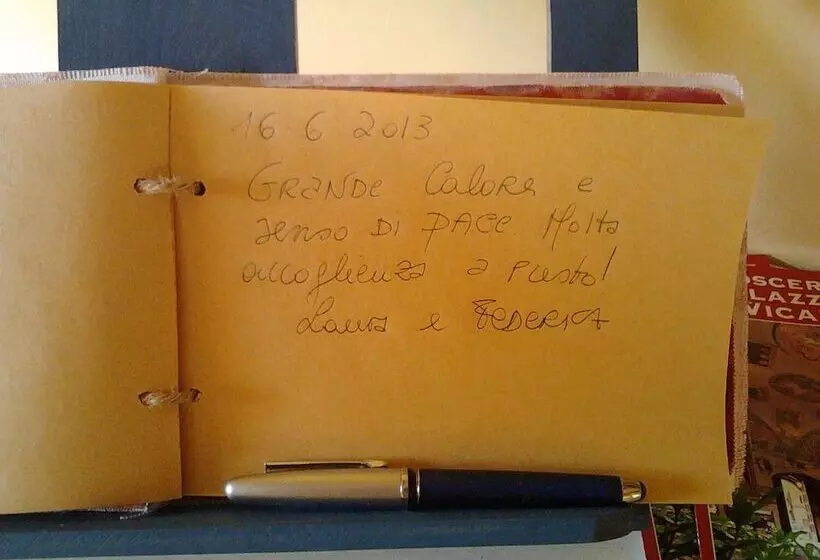 16 6 2013
GRANDE Calore e
senso DI PACE. Molta
accoglienza a presto!
Laura e FEDERICA
OSCER
LAZZ
VICA